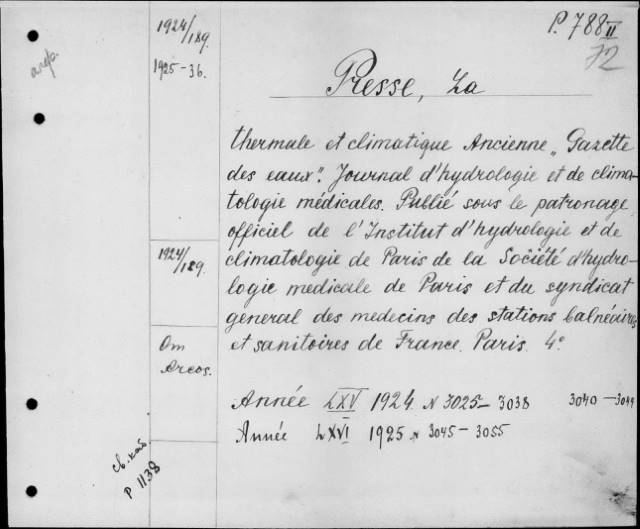 1924/189.
1925-36.
P. 788 II
72
Presse, La
thermale et climatique Ancienne „Gazette
des eaux". Journal d'hydrologie et de clima-
tologie médicales. Publié sous le patronage
officiel de l'Institut d'hydrologie et de
climatologie de Paris de la Société d'hydro-
logie medicale de Paris et du syndicat
general des medecins des stations balnéaires
et sanitoires de France. Paris. 4°
1924/189.
Om
Arcos.
Année LXV 1924. N 3025-3038 3040-3044
Année LXVI 1925 N 3045-3055
P 1138